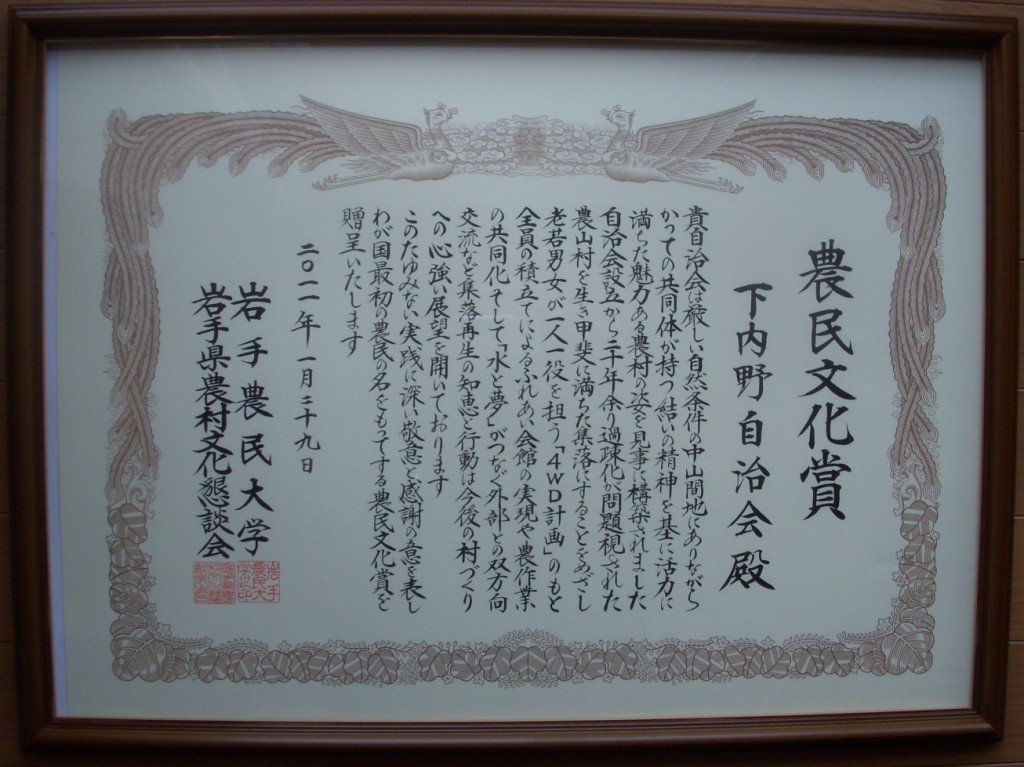 農民文化賞
下内野自治会殿
貴自治会は厳しい自然条件の中山間地にありながら
かつての共同体が持つ「結い」の精神を基に活力に
満ちた魅力ある農村の姿を見事に構築されました
自治会設立から二十年余り過疎化が問題視された
農山村を生き甲斐に満ちた集落にすることをめざし
老若男女が一人一役を担う「4WD計画」のもと
全員の積立てによるふれあい会館の実現や農作業
の共同化そして「水と夢」がつなぐ外部との双方向
交流など集落再生の知恵と行動は今後の村づくり
への心強い展望を開いております
このたゆみない実践に深い敬意と感謝の意を表し
わが国最初の農民の名をもってする農民文化賞を
贈呈いたします
二〇一一年一月二十九日
岩手農民大学
岩手県農村文化懇談会
岩手
農民大
学之印